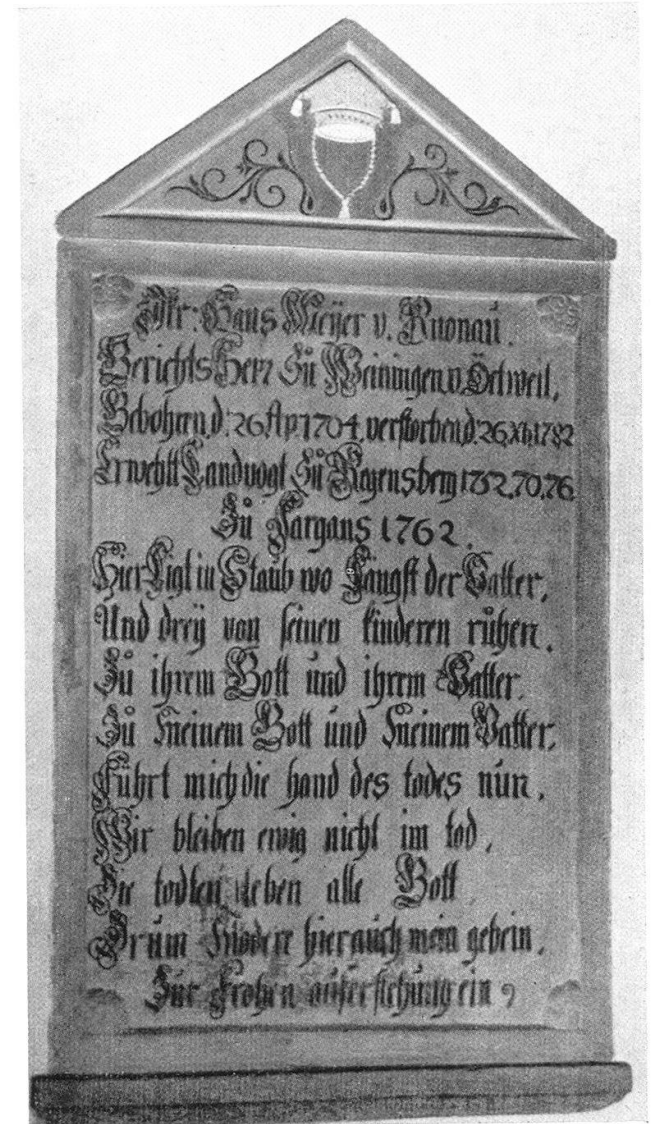 Jkr: Hans Meÿer v. Knonaü.
Gerichts Herr Zü Weiningen, v. Öetweil,
Gebohren, d: 26. Ap 1704, verstorben, d: 26. Xb. 1782
Erwehlt Landvogt Zü Regensberg 1752. 70. 76.
Zü Sargans 1762.
Hier Ligt in Staüb wo Längst der Vatter,
Und dreÿ von seinen kinderen rühen.
Zü ihrem Gott und ihrem Vatter.
Zü meinem Gott ünd meinem Vatter.
Führt mich die hand des todes nün.
Wir bleiben ewig nicht im tod.
Die todten leben alle Gott.
Drüm modere hier aüch mein gebein.
Zür frohen aüferstehüng ein